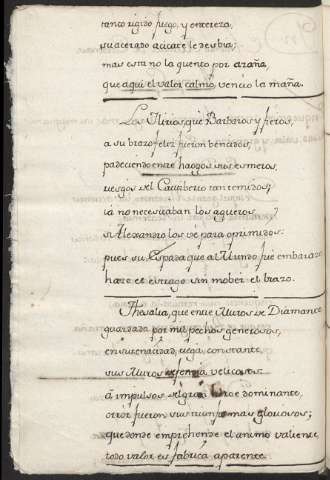 tanto rigido fuego, y entereza,
su acerado azicate le desbia;
mas esta no la quento por azaña,
que aqui el valor calmó, vencio la maña.
Los Ilirios, que Barbaros y fieros,
a su brazo feloz fueron bencidos,
padeciendo entre haogos sus esmeros,
riesgos del Cautiberio tan temidos;
iá no necesitaban los agueros,
si Alexandro los ve para oprimidos:
pues su Espada que al Mundo fue embarazo
haze el estrago sin mober el brazo.
Thesalia, que entre Muros de Diamante
guardada por mil pechos generosos,
en su tenacidad, ciega, constante,
sus Muros defendia velicosos:
á impulsos del gran Heroe dominante,
otros fueron sus triunfos mas gloriosos;
que donde emprehende el animo valiente
todo valor es fabrica aparente.